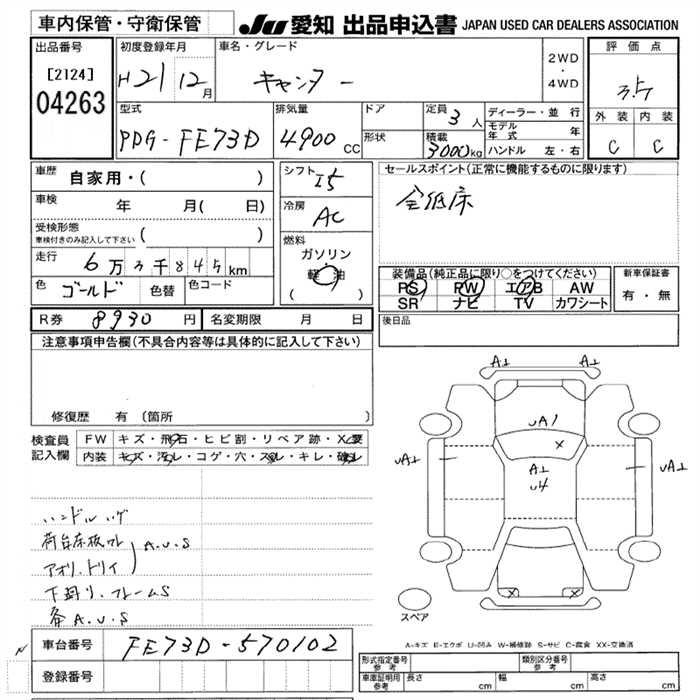 車内保管・守衛保管
JU 愛知 出品申込書 JAPAN USED CAR DEALERS ASSOCIATION
出品番号
[2124]
04263
初度登録年月
H21 12月
車名・グレード
キャンター
2WD
・
4WD
評価点
3.5
外装 内装
C C
型式
PDG-FE73D
排気量
4900 cc
ドア
形状
定員 3人
積載 3000kg
ディーラー・並行
モデル年式 年
ハンドル 左・右
車歴
自家用・( )
車検
年 月( 日)
受検形態
車検付きのみ記入して下さい ( )
走行
6万3千845km
色 ゴールド 色替 色コード
シフト
I5
冷房
AC
燃料
ガソリン
軽油
( )
セールスポイント(正常に機能するものに限ります)
全低床
装備品(純正品に限り○をつけてください)
PS PW エアB AW
SR ナビ TV カワシート
新車保証書
有・無
後日品
R券 8930円 名変期限 月 日
注意事項申告欄(不具合内容等は具体的に記入して下さい)
修復歴 有(箇所
検査員
記入欄
FW キズ・飛石・ヒビ割・リペア跡・X要
内装 キズ・汚レ・コゲ・穴・スレ・キレ・破レ
ハンドルハゲ
荷台床板ワレ
アオリ.トリイ
A.U.S
下廻り.フレームS
各A.U.S
A⊥ A⊥
uA1
X
uA⊥
A⊥
u4
uA⊥
X X
スペア
A-キズ E-エクボ U-凹み W-補修跡 S-サビ C-腐食 XX-交換済
車台番号 FE73D-570102
登録番号
形式指定番号
参考
類別区分番号
参考
車庫証明用
参考
長さ cm 幅 cm 高さ cm